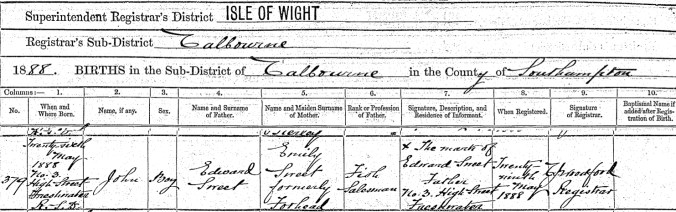 Superintendent Registrar's District ISLE OF WIGHT
Registrar's Sub-District Calbourne
1888. BIRTHS in the Sub-District of Calbourne in the County of Southampton
Columns:— 1. 2. 3. 4. 5. 6. 7. 8. 9. 10.
No. When and Where Born. Name, if any. Sex. Name and Surname of Father. Name and Maiden Surname of Mother. Rank or Profession of Father. Signature, Description, and Residence of Informant. When Registered. Signature of Registrar. Baptismal Name if added after Registration of Birth.
379 Twenty sixth May 1888 No. 3. High Street Freshwater R.S.D. John Boy Edward Sweet Emily Sweet formerly Fish Salesman X The mark of Edward Sweet Father No. 3. High Street Freshwater Twenty ninth May 1888 Registrar